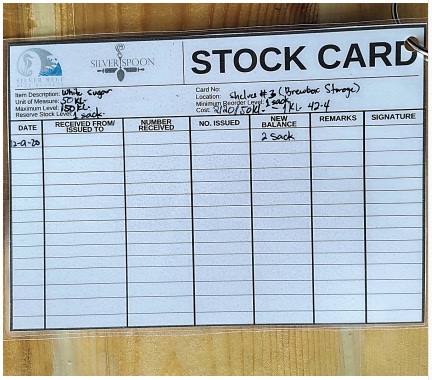 SILVER REEF
SILVER SPOON
STOCK CARD
Item Description: White Sugar
Unit of Measure: 50 KL.
Maximum Level: 150 KL.
Reserve Stock Level: 1 sack.
Card No:
Location: Shelves #3 (Brewbox Storage)
Minimum Reorder Level: 1 sack
Cost: 2120/50KL - 1 KL. 42.4
DATE RECEIVED FROM/ ISSUED TO NUMBER RECEIVED NO. ISSUED NEW BALANCE REMARKS SIGNATURE
12-9-20 2 sack